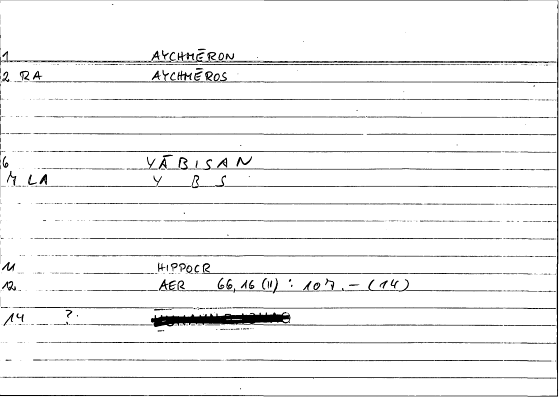 1 AYCHMĒRON
2 RA AYCHMĒROS
6 YĀBISAN
7 LA Y B S
11 HIPPOCR
12 AER 66,16 (II) : 107.-(14)
14 ?